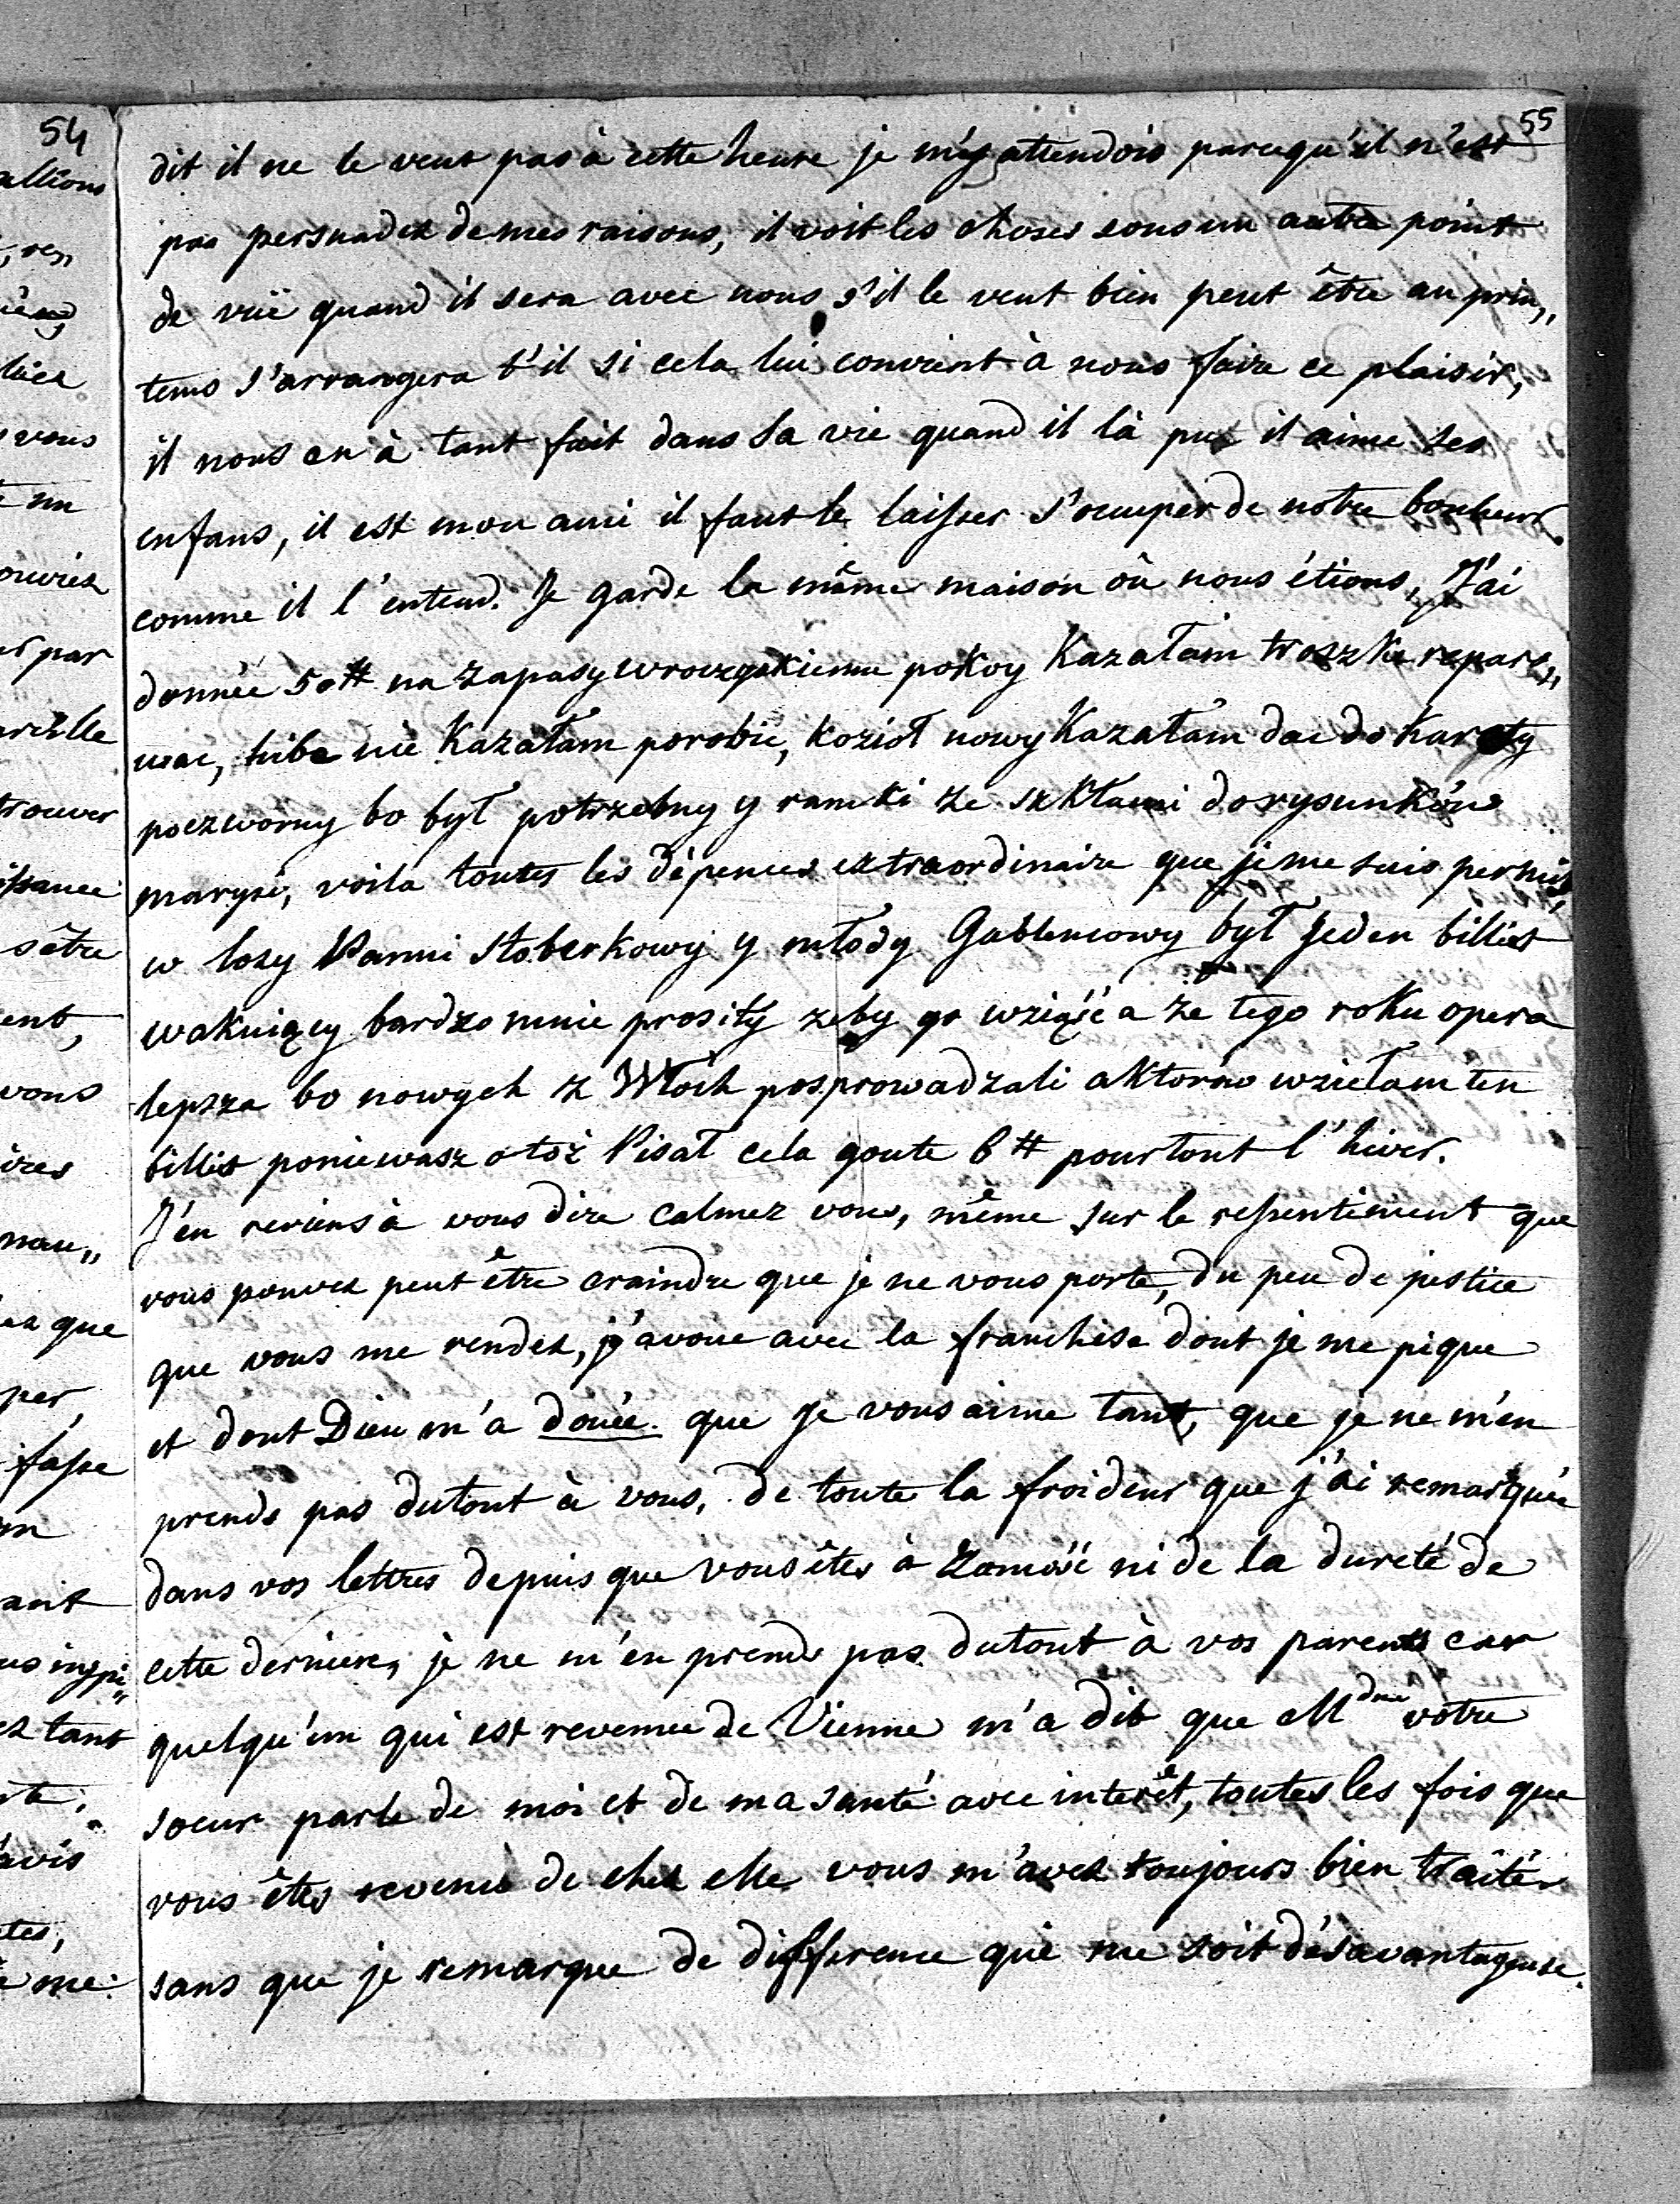 55
dit il ne le veut pas à cette heure je m'y attendois parcequ'il n'est
pas persuadez de mes raisons, il voit les choses sous un autre point
de vüe quand il sera avec nous s'il le veut bien peut être au prin„
tems s'arrangera t'il si cela lui convient à nous faire ce plaisir,
il nous en à tant fait dans sa vie quand il là pu il aime ses
enfans, il est mon ami il faut le laisser s'ocuper de notre bonheur
comme il l'entend. Je garde la même maison où nous étions, J'ai
donnée 50# na zapasy pokoy Kazałam troszke reparo„
wac, nie Kazałam porobic, kozioł nowy Kazałam dac do Karety
poczworny bo był potrzebny y ramki ze szkłami do rysunków
marysi, voila toutes les dépences extraordinaire que je me suis permis,
w lozy Panni Stoberkowy y młody był jeden billiet
wakuiący bardzo mnie prosiły zeby go wziąść a że tego roku opera
lepsza bo nowych z Włoch posprowadzali aktorów wziełam ten
billiet poniewasz o toż Pisał cela goute 6# pour tout l'hiver.
J'en reviens à vous dire calmez vous, même sur le ressentiment que
vous pouvez peut être craindre que je ne vous porte, du peu de justice
que vous me rendez, j'avoue avec la franchise dont je me pique
et dont Dieu m'a douée. que je vous aime tant, que je ne m'en
prends pas dutout à vous, de toute la froideur que j'ai remarquée
dans vos lettres depuis que vous êtes à Zamość ni de la dureté de
cette derniere, je ne m'en prends pas dutout à vos parents car
quelqu'un qui est revenue de Vienne m'a dit que Mdme votre
soeur parle de moi et de ma santé avec interêt, toutes les fois que
vous êtes revenu de chez elle vous m'avez toujours bien traiter
sans que je remarque de difference qui me soit désavantageuse.
54